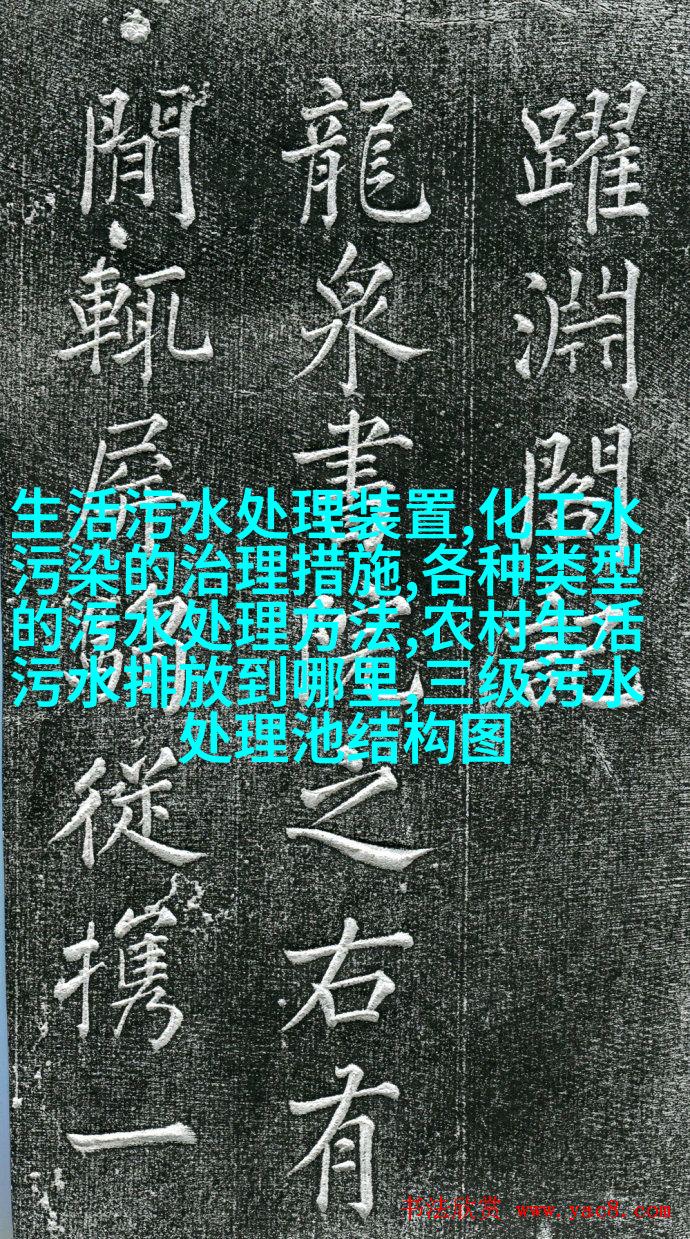 躍淵閣
龍泉書院之右有
閒輒屏從攜一
生活污水处理装置,化工水
污染的治理措施,各种类型
的污水处理方法,农村生活
污水排放到哪里,三级污水
处理池结构图
书法欣赏 www.yac8.com